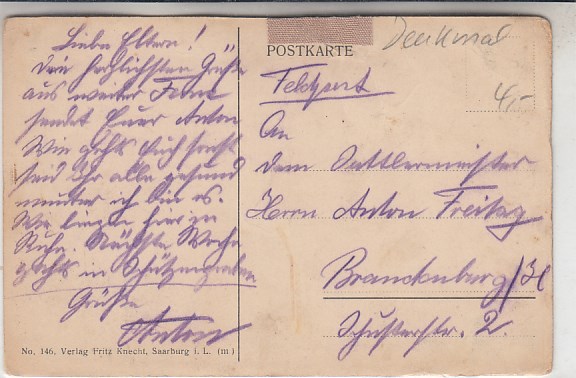 Liebe Eltern!
Die herzlichsten Grüße
aus weiter Ferne
sendet Euer Anton
Wie gehts Euch
seid Ihr alle gesund
munter ich bin es.
Wir liegen hier in
Ruhe. Nächste Woche
gehts in Schützengraben
Grüße
Anton
No. 146. Verlag Fritz Knecht, Saarburg i. L. (m)
POSTKARTE
Denkmal
4,-
Feldpost
An
dem Sattlermeister
Herrn Anton Freitag
Brandenburg/H
Schusterstr. 2.